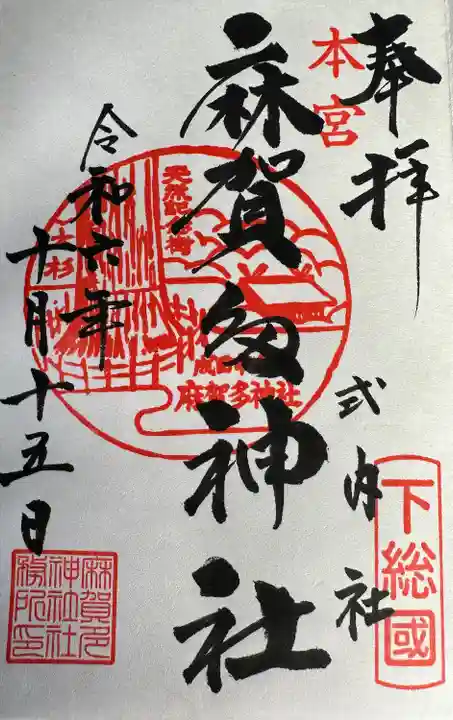 奉拝
式内社
下総國
本宮
麻賀多神社
天然記念樹
大杉
麻賀多神社
令和六年
十月十五日
麻賀多
神社社
務所印